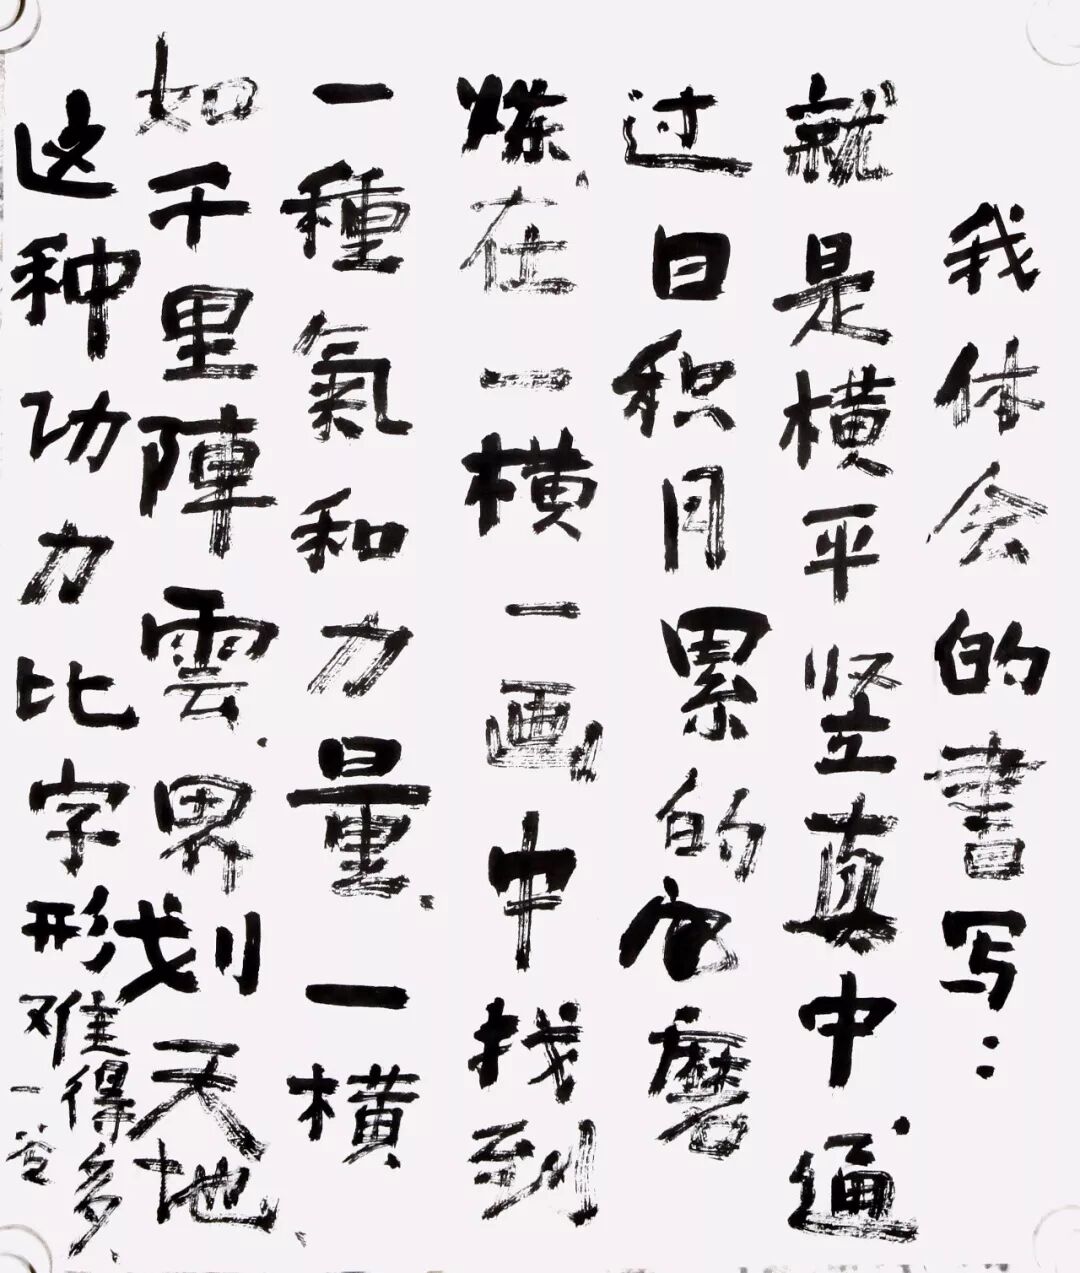 我体会的書写：
就是横平竖直中，通
过日积月累的心磨
炼，在一横一画中找到
一種氣和力量，一横
如千里陣雲，界划天地，
这种功力比字形难得多，